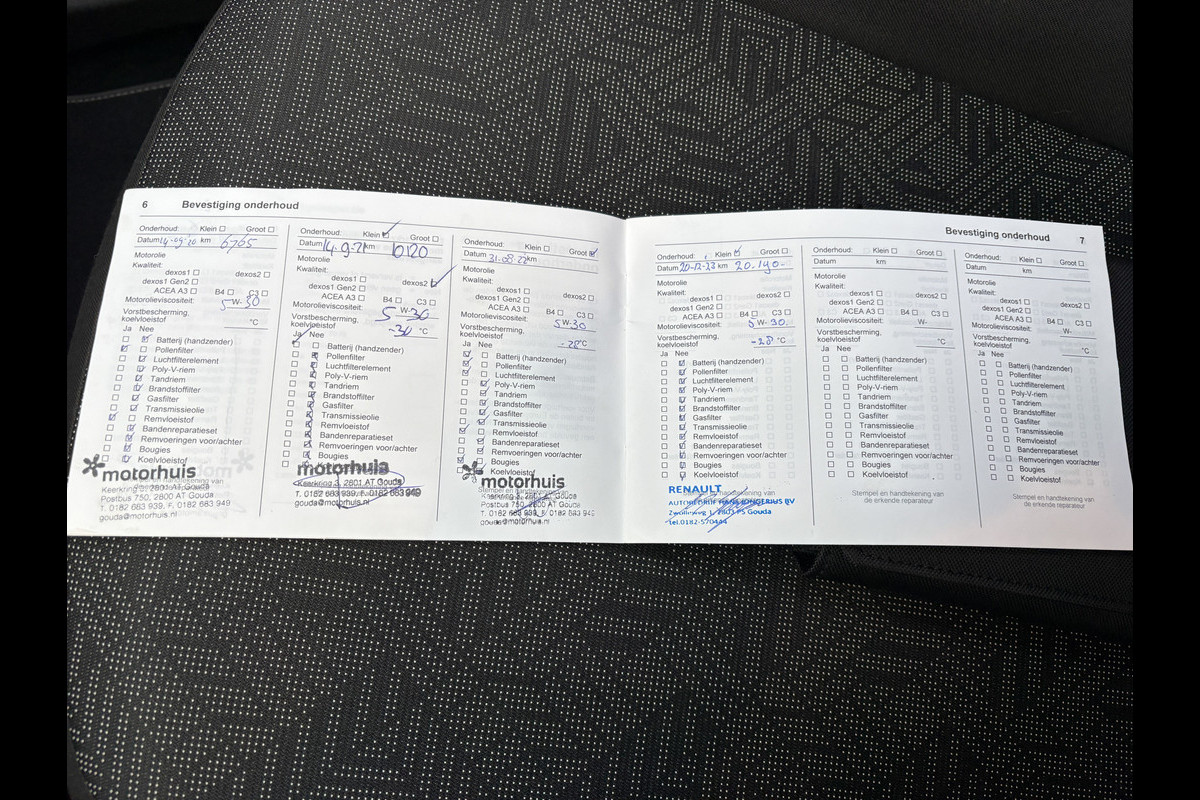 6 Bevestiging onderhoud
Onderhoud: Klein Groot
Datum 14-09-20 km 6765
Motorolie
Kwaliteit:
dexos1 dexos2
dexos1 Gen2
ACEA A3 B4 C3
Motorolieviscositeit: 5W-30
Vorstbescherming,
koelvloeistof °C
Ja Nee
Batterij (handzender)
Pollenfilter
Luchtfilterelement
Poly-V-riem
Tandriem
Brandstoffilter
Gasfilter
Transmissieolie
Remvloeistof
Bandenreparatieset
Remvoeringen voor/achter
Bougies
Koelvloeistof
motorhuis
Keerkring 3, 2801 AT Gouda
Postbus 750, 2800 AT Gouda
T. 0182 683 939, F. 0182 683 949
gouda@motorhuis.nl
Onderhoud: Klein Groot
Datum 14-9-21 km 10120
Motorolie
Kwaliteit:
dexos1 dexos2
dexos1 Gen2
ACEA A3 B4 C3
Motorolieviscositeit: 5 W-30
Vorstbescherming,
koelvloeistof -30 °C
Ja Nee
Batterij (handzender)
Pollenfilter
Luchtfilterelement
Poly-V-riem
Tandriem
Brandstoffilter
Gasfilter
Transmissieolie
Remvloeistof
Bandenreparatieset
Remvoeringen voor/achter
Bougies
motorhuis
Keerkring 3, 2801 AT Gouda
T. 0182 683 939, F. 0182 683 949
gouda@motorhuis.nl
Onderhoud: Klein Groot
Datum 31-08-22 km
Motorolie
Kwaliteit:
dexos1 dexos2
dexos1 Gen2
ACEA A3 B4 C3
Motorolieviscositeit: 5W-30
Vorstbescherming,
koelvloeistof -28°C
Ja Nee
Batterij (handzender)
Pollenfilter
Luchtfilterelement
Poly-V-riem
Tandriem
Brandstoffilter
Gasfilter
Transmissieolie
Remvloeistof
Bandenreparatieset
Remvoeringen voor/achter
Bougies
Koelvloeistof
motorhuis
Keerkring 3, 2801 AT Gouda
Postbus 750, 2800 AT Gouda
T. 0182 683 939, F. 0182 683 949
gouda@motorhuis.nl
Bevestiging onderhoud 7
Onderhoud: Klein Groot
Datum 20-12-23 km 20.190-
Motorolie
Kwaliteit:
dexos1 dexos2
dexos1 Gen2
ACEA A3 B4 C3
Motorolieviscositeit: 5 W-30.
Vorstbescherming,
koelvloeistof -28 °C
Ja Nee
Batterij (handzender)
Pollenfilter
Luchtfilterelement
Poly-V-riem
Tandriem
Brandstoffilter
Gasfilter
Transmissieolie
Remvloeistof
Bandenreparatieset
Remvoeringen voor/achter
Bougies
Koelvloeistof
RENAULT
AUTOBEDRIJF HANS JONGERIUS BV
Zwolleweg 1, 2803 PS Gouda
tel.0182-570444
Onderhoud: Klein Groot
Datum km
Motorolie
Kwaliteit:
dexos1 dexos2
dexos1 Gen2
ACEA A3 B4 C3
Motorolieviscositeit: W-
Vorstbescherming,
koelvloeistof °C
Ja Nee
Batterij (handzender)
Pollenfilter
Luchtfilterelement
Poly-V-riem
Tandriem
Brandstoffilter
Gasfilter
Transmissieolie
Remvloeistof
Bandenreparatieset
Remvoeringen voor/achter
Bougies
Koelvloeistof
Stempel en handtekening van
de erkende reparateur
Onderhoud: Klein Groot
Datum km
Motorolie
Kwaliteit:
dexos1 dexos2
dexos1 Gen2
ACEA A3 B4 C3
Motorolieviscositeit: W-
Vorstbescherming,
koelvloeistof °C
Ja Nee
Batterij (handzender)
Pollenfilter
Luchtfilterelement
Poly-V-riem
Tandriem
Brandstoffilter
Gasfilter
Transmissieolie
Remvloeistof
Bandenreparatieset
Remvoeringen voor/achter
Bougies
Koelvloeistof
Stempel en handtekening van
de erkende reparateur